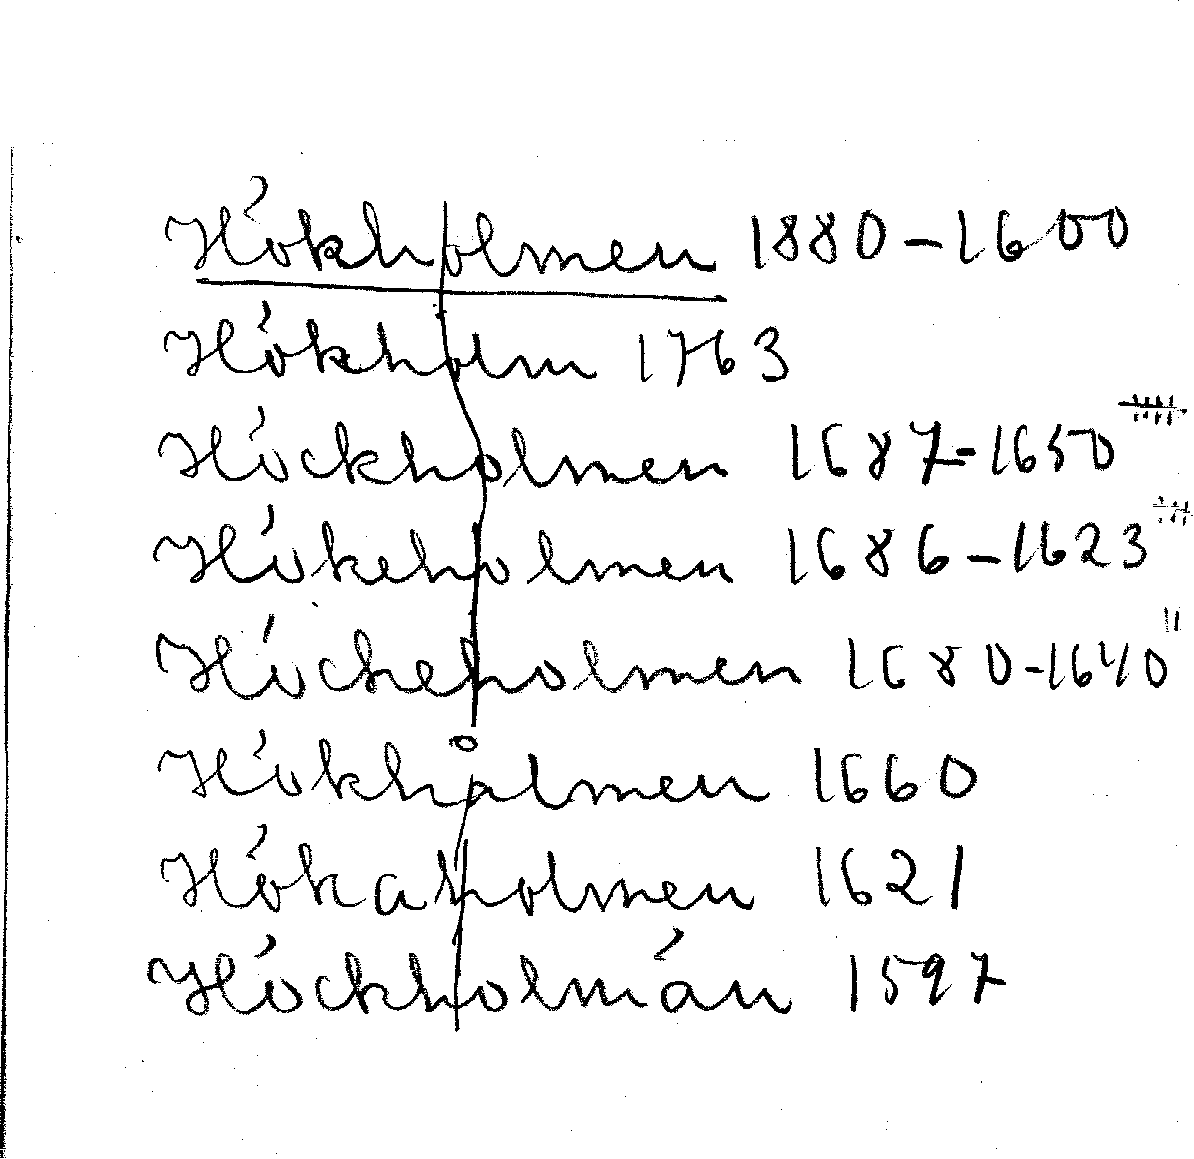 Hökholmen 1880-1600
Hökholm 1763
Höckholmen 1687-1650
Hökeholmen 1686-1623
Höckeholmen 1680-1640
Hökhålmen 1660
Hökaholmen 1621
Höckholmän 1597